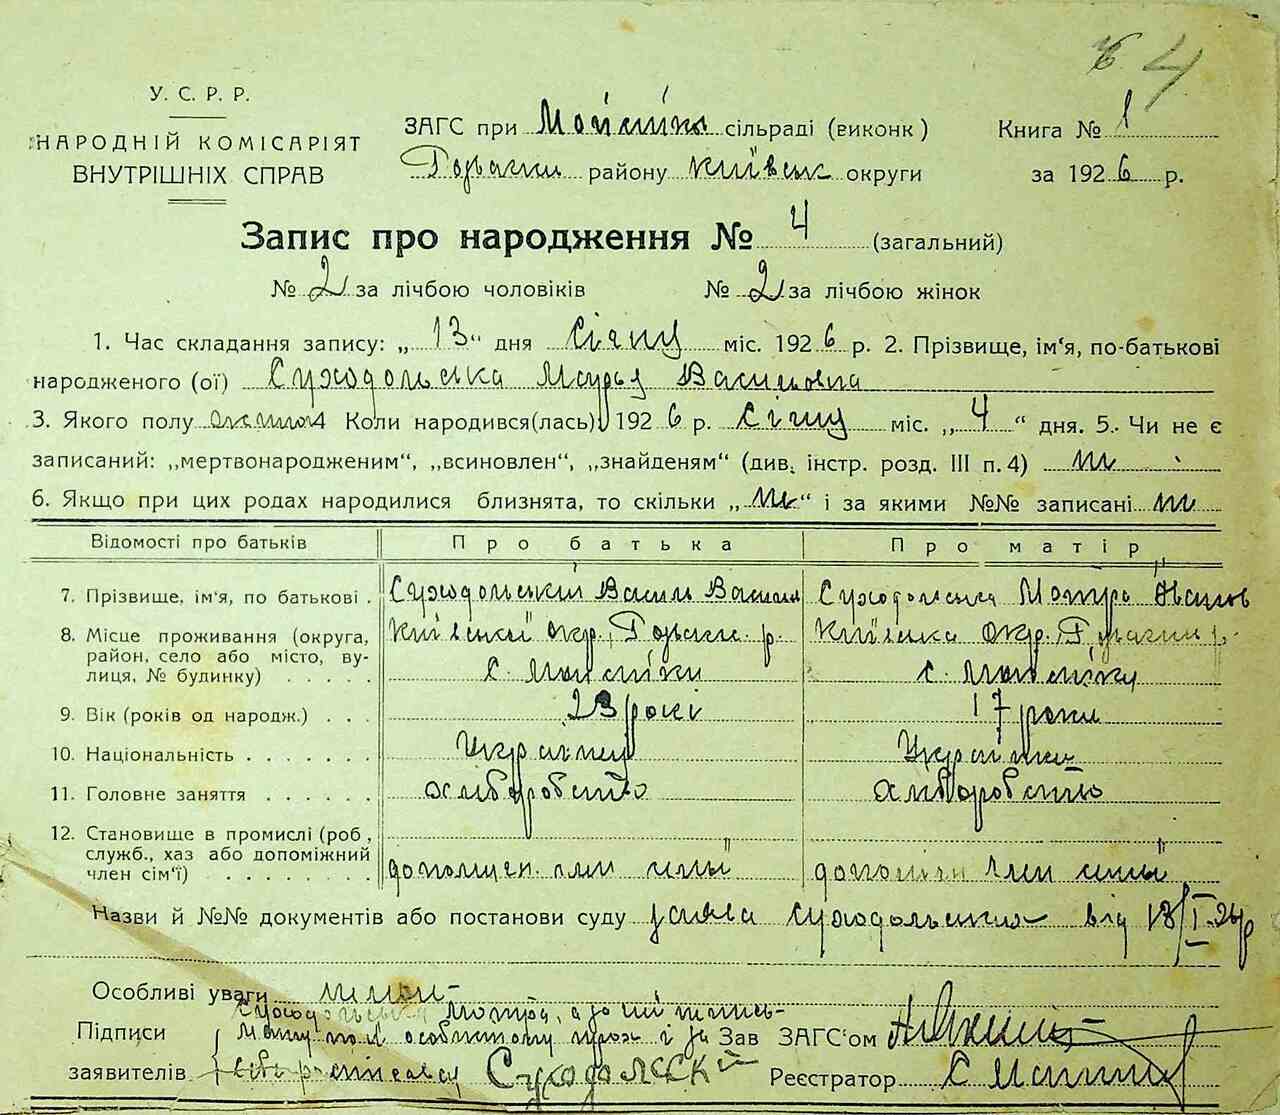 4
У. С. Р. Р.
НАРОДНІЙ КОМІСАРІЯТ
ВНУТРІШНІХ СПРАВ
ЗАГС при сільраді (виконк)
району Київськ округи
Книга № 1
за 1926 р.
Запис про народження № 4 (загальний)
№ 2 за лічбою чоловіків № 2 за лічбою жінок
1. Час складання запису: „13" дня січню міс. 1926 р. 2. Прізвище, ім'я, по-батькові
народженого (ої) Суходольська Марья Василовна
3. Якого полу Коли народився(лась) 1926 р. січню міс. „4" дня. 5. Чи не є
записаний: „мертвонародженим", „всиновлен", „знайденям" (див. інстр. розд. III п. 4) ні
6. Якщо при цих родах народилися близнята, то скільки „ні" і за якими №№ записані ні
Відомості про батьків Про батька Про матір
7. Прізвище, ім'я, по батькові . Суходольський Василь Васил Суходольська Мотря
8. Місце проживання (округа, Київської окр. р. Київська окр. р.
район, село або місто, ву-
лиця, № будинку) . . . . . с.  с.
9. Вік (років од народж.) . . . 23 рокі 17 роки
10. Національність . . . . . . . Українец Українка
11. Головне заняття . . . . . . хліборобство хліборобство
12. Становище в промислі (роб,
служб., хаз або допоміжний
член сім'ї) . . . . . . . . допоміжн. член сімьї допоміжн член сімьї
Назви й №№ документів або постанови суду заява від 13/I
Особливі уваги немає
Суходольська Мотря, а за
Підписи особистому і за Зав ЗАГС'ом
заявителів Суходольский Реєстратор